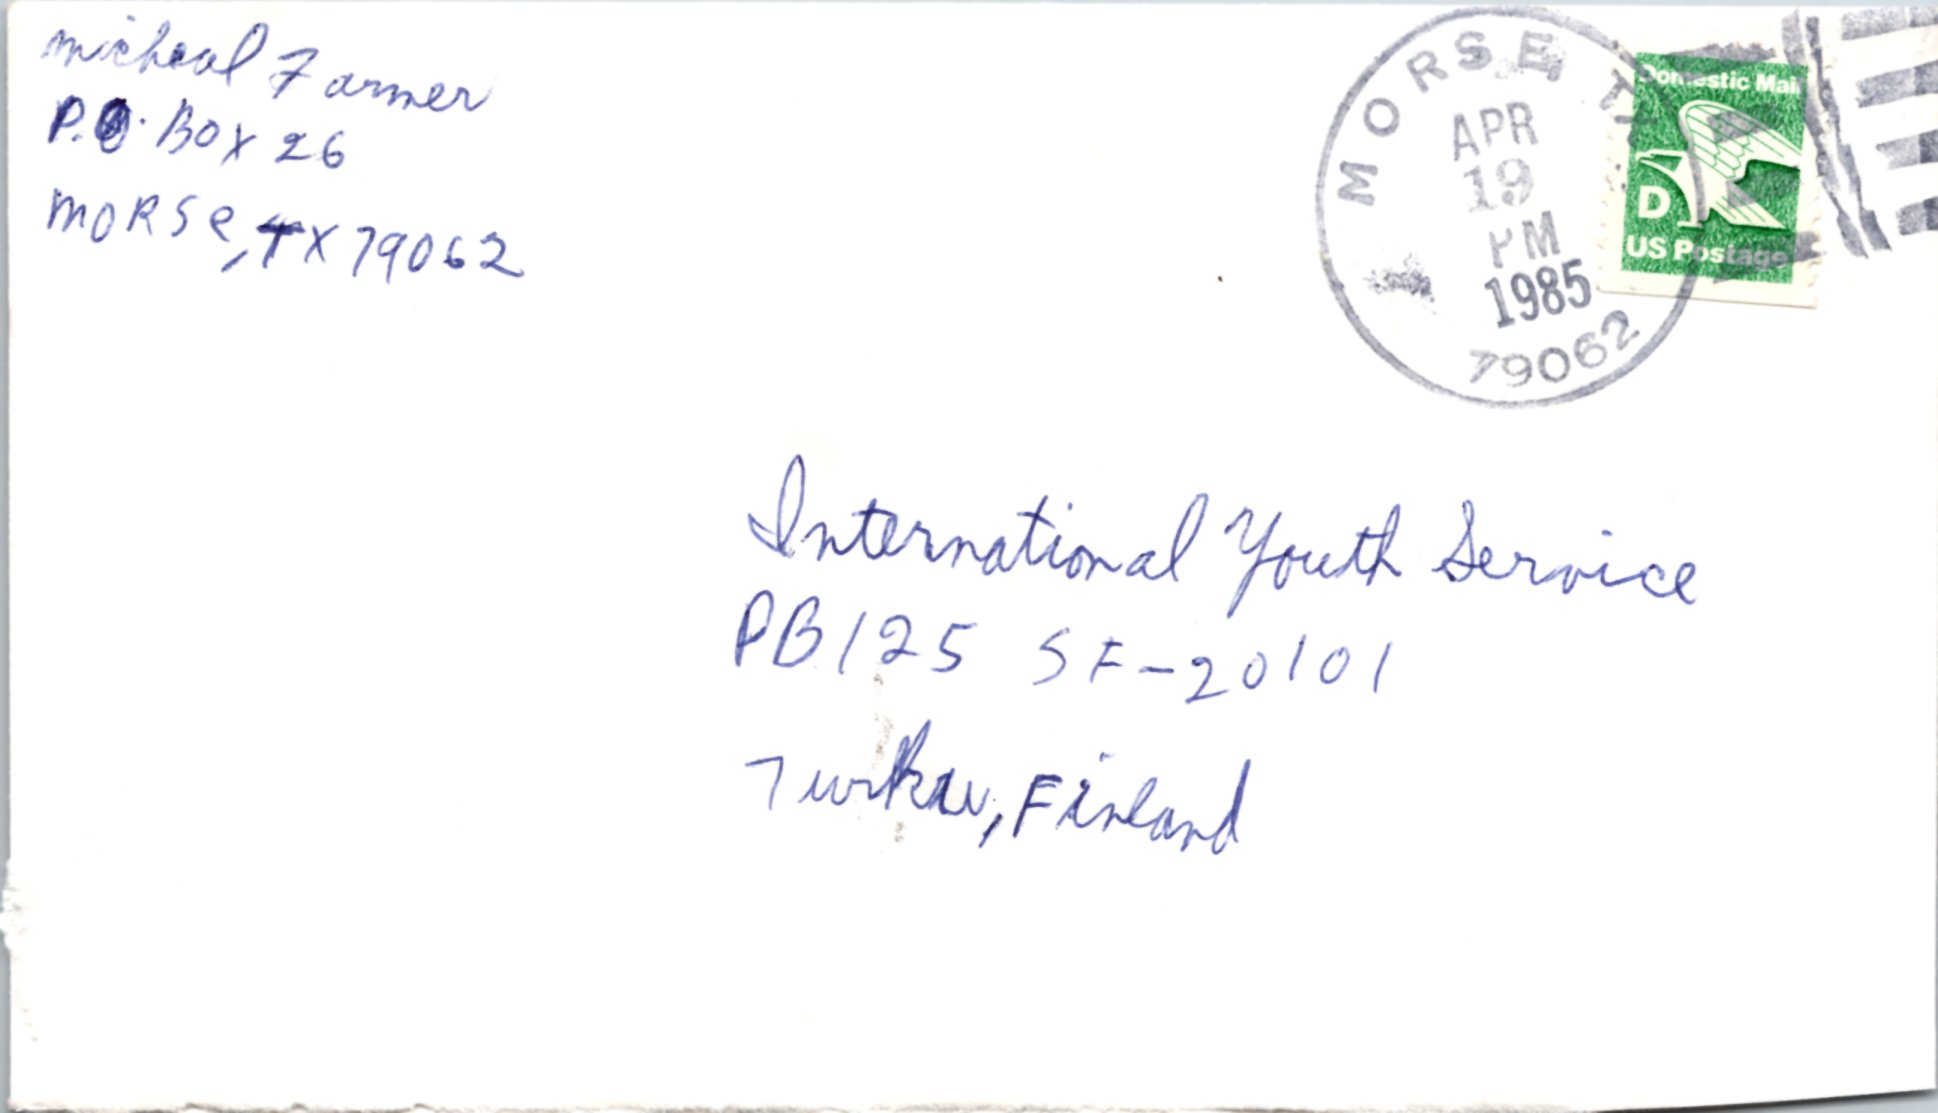 Micheal Farmer
P.O. Box 26
Morse, TX 79062
MORSE TX
APR
19
PM
1985
79062
Domestic Mail
D
US Postage
International Youth Service
PB 125 SF-20101
Turku, Finland